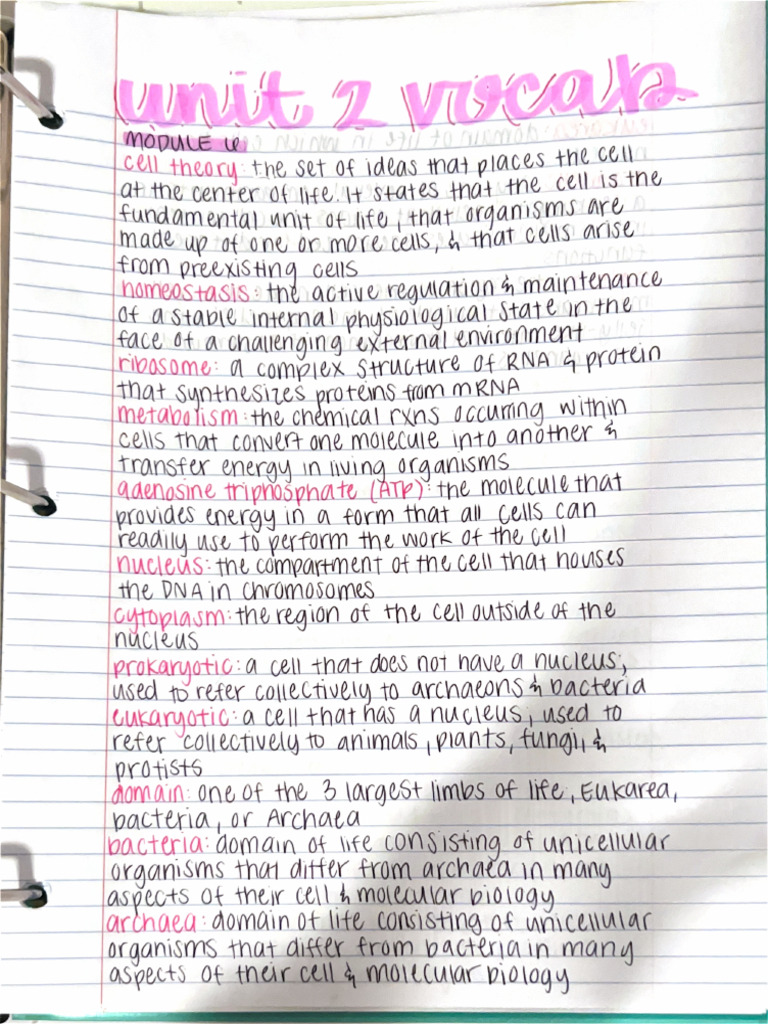 unit 2 vocab
MODULE 6
cell theory: the set of ideas that places the cell
at the center of life. It states that the cell is the
fundamental unit of life, that organisms are
made up of one or more cells, & that cells arise
from preexisting cells
homeostasis: the active regulation & maintenance
of a stable internal physiological state in the
face of a challenging external environment
ribosome: a complex structure of RNA & protein
that synthesizes proteins from mRNA
metabolism: the chemical rxns occurring within
cells that convert one molecule into another &
transfer energy in living organisms
adenosine triphosphate (ATP): the molecule that
provides energy in a form that all cells can
readily use to perform the work of the cell
nucleus: the compartment of the cell that houses
the DNA in chromosomes
cytoplasm: the region of the cell outside of the
nucleus
prokaryotic: a cell that does not have a nucleus;
used to refer collectively to archaeons & bacteria
eukaryotic: a cell that has a nucleus; used to
refer collectively to animals, plants, fungi, &
protists
domain: one of the 3 largest limbs of life, Eukarea,
bacteria, or Archaea
bacteria: domain of life consisting of unicellular
organisms that differ from archaea in many
aspects of their cell & molecular biology
archaea: domain of life consisting of unicellular
organisms that differ from bacteria in many
aspects of their cell & molecular biology